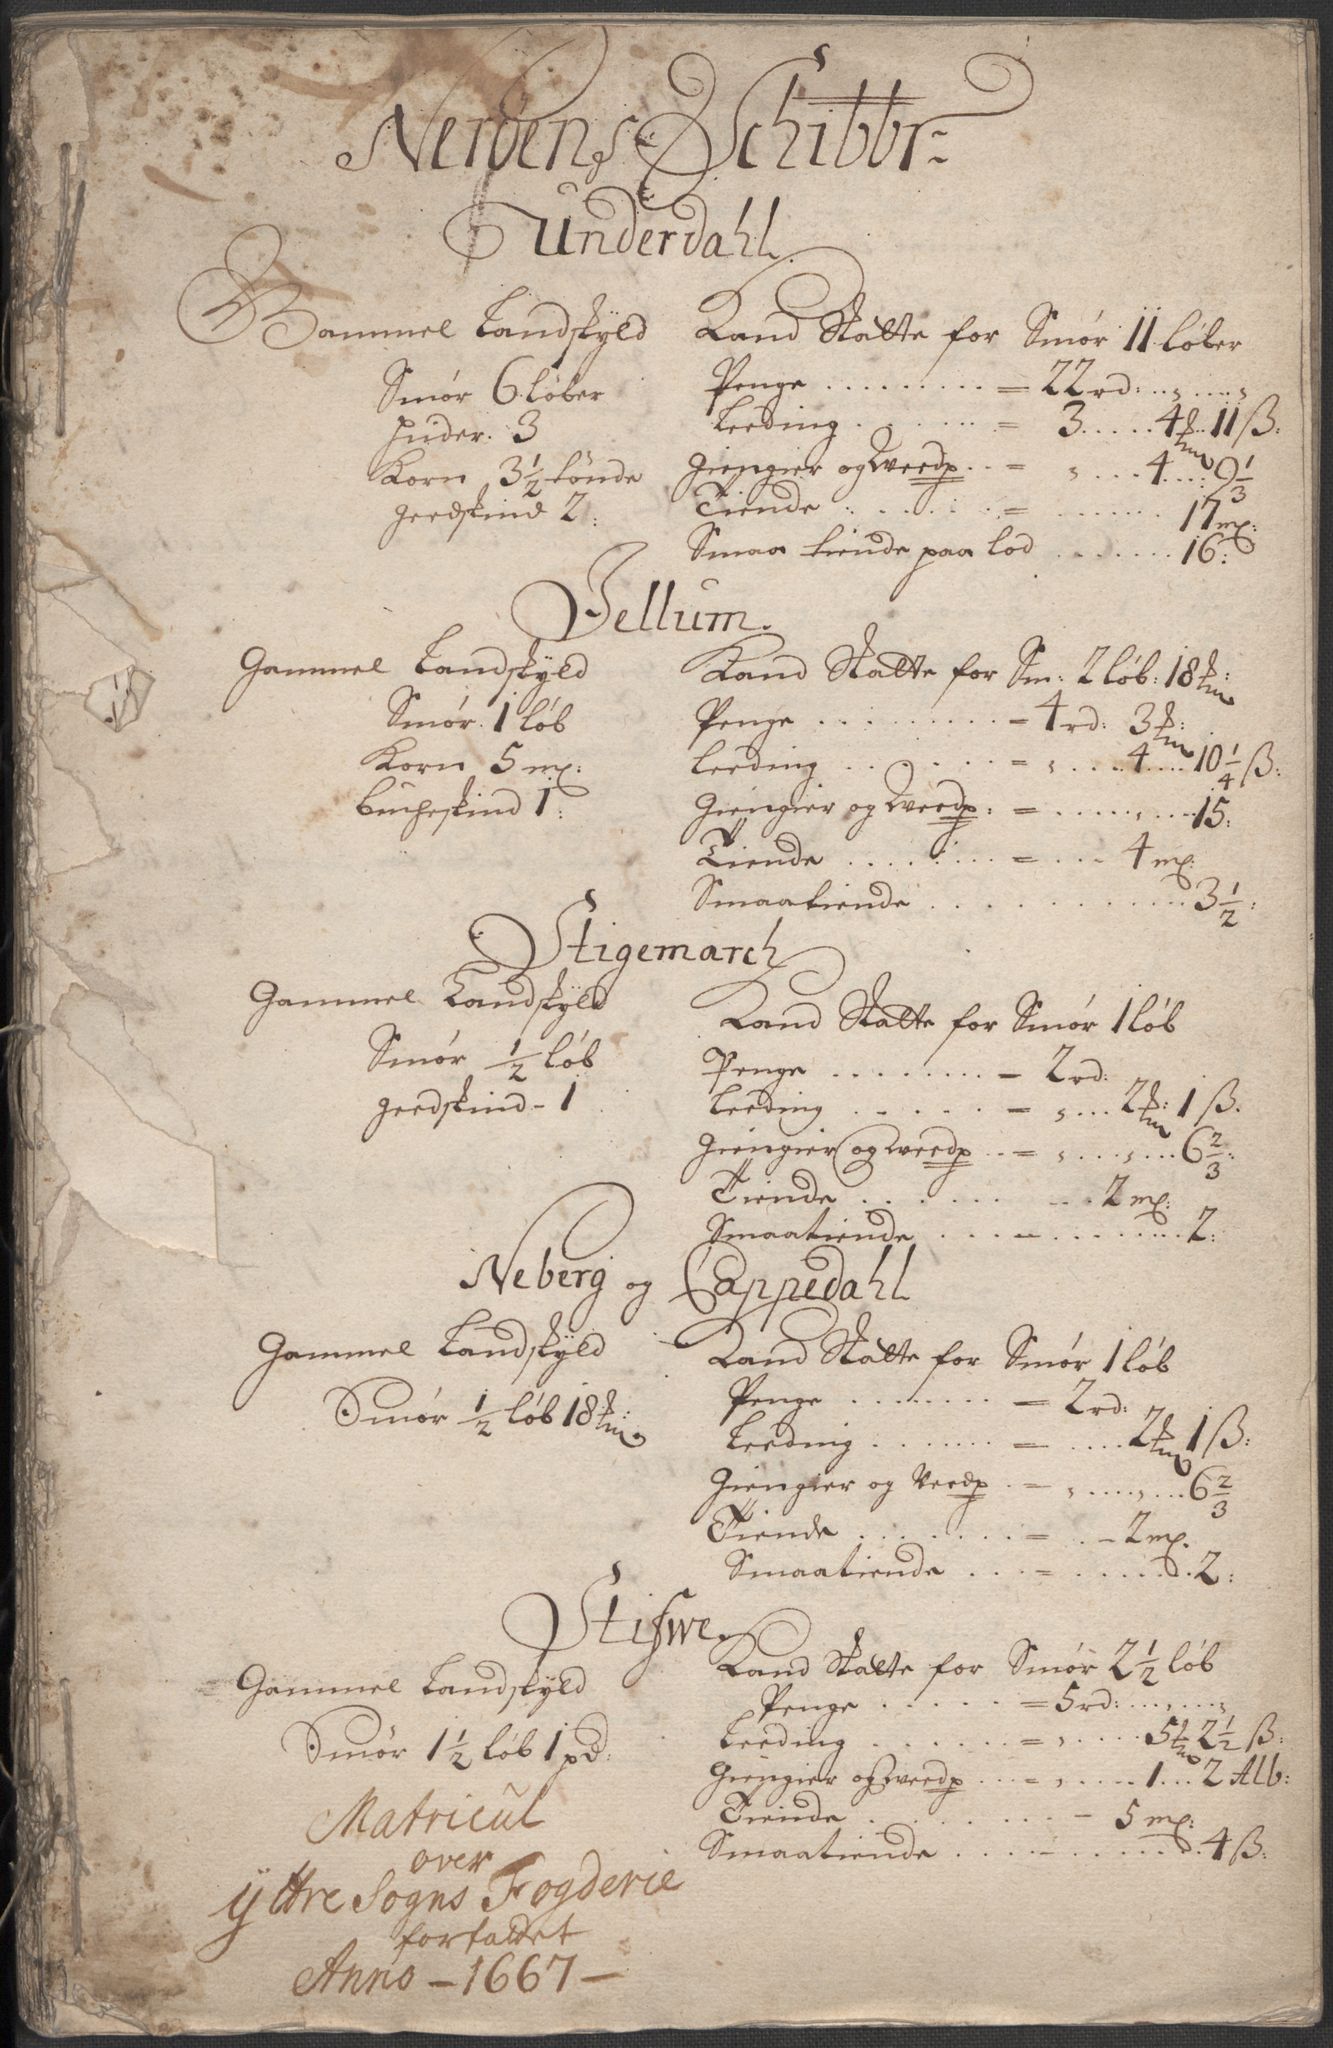 Neröens Schibbr:
Underdahl
Gammel Landskÿld
Smór 6 lóber
Huder. 3
Korn 3 1/2 tónde
geedskind 2:
Kand Skatte for Smór 11 lóber
Penge ......... = 22 rd: .. „ .... „
Leeding ....... = 3 ..... 4 11 ß:
giengier og Vreedp .. = „ .... 4 .... 9 1/3
Tiende ....... = ........ 17 mp:
Smaa tiende paa lod ....... 16:
Jellum.
Gammel Landskÿld
Smór. 1 lób
Korn 5 mp:
bucheskind 1:
Kand Skatte for Sm: 2 lób: 18
Penge ......... = 4 rd: 3
Leeding ....... = „ .... 4 .... 10 1/4 ß:
Giengier og Vreedp: = ..... „ .... 15:
Tiende ....... = ... 4 mp:
Smaatiende ............ 3 1/2:
Stigemarch
Gammel Landskÿld
Smór 1/2 lób
geedskind - 1
Kand Skatte for Smór 1 lób
Penge ........ = 2 rd:
Leeding ...... = „ ... 2 1 ß.
Giengier og Vreedp .. = „ .... „ ... 6 2/3:
Tiende ....... ... 2 mp:
Smaatiende ... = ....... 2:
Neberg og Cappedahl
Gammel Landskÿld
Smór 1/2 lób 18
Kand Skatte for Smór 1 lób
Penge ........ = 2 rd:
Leeding ...... = .... 2 1 ß:
Giengier og Vreedp .. = „ .... „ ... 6 2/3
Tiende ....... = .. - 2 mp.
Smaatiende ... = ....... 2:
Stifwe.
Gammel Landskÿld
Smór 1 1/2 lób 1 pd:
Kand Skatte for Smór 2 1/2 lób
Penge ...... = 5 rd: ... „ ... „
Leeding ....... = „ .... 5 2 1/2 ß:
Giengier og Vreedp ... = „ ..... 1 ... 2 Alb:
Tiende ........ - 5 mp:
Smaatiende .... - ....... 4 ß:
Matricúl
over
ÿttre Sogns Fogderie
forfattet
Anno - 1667 -